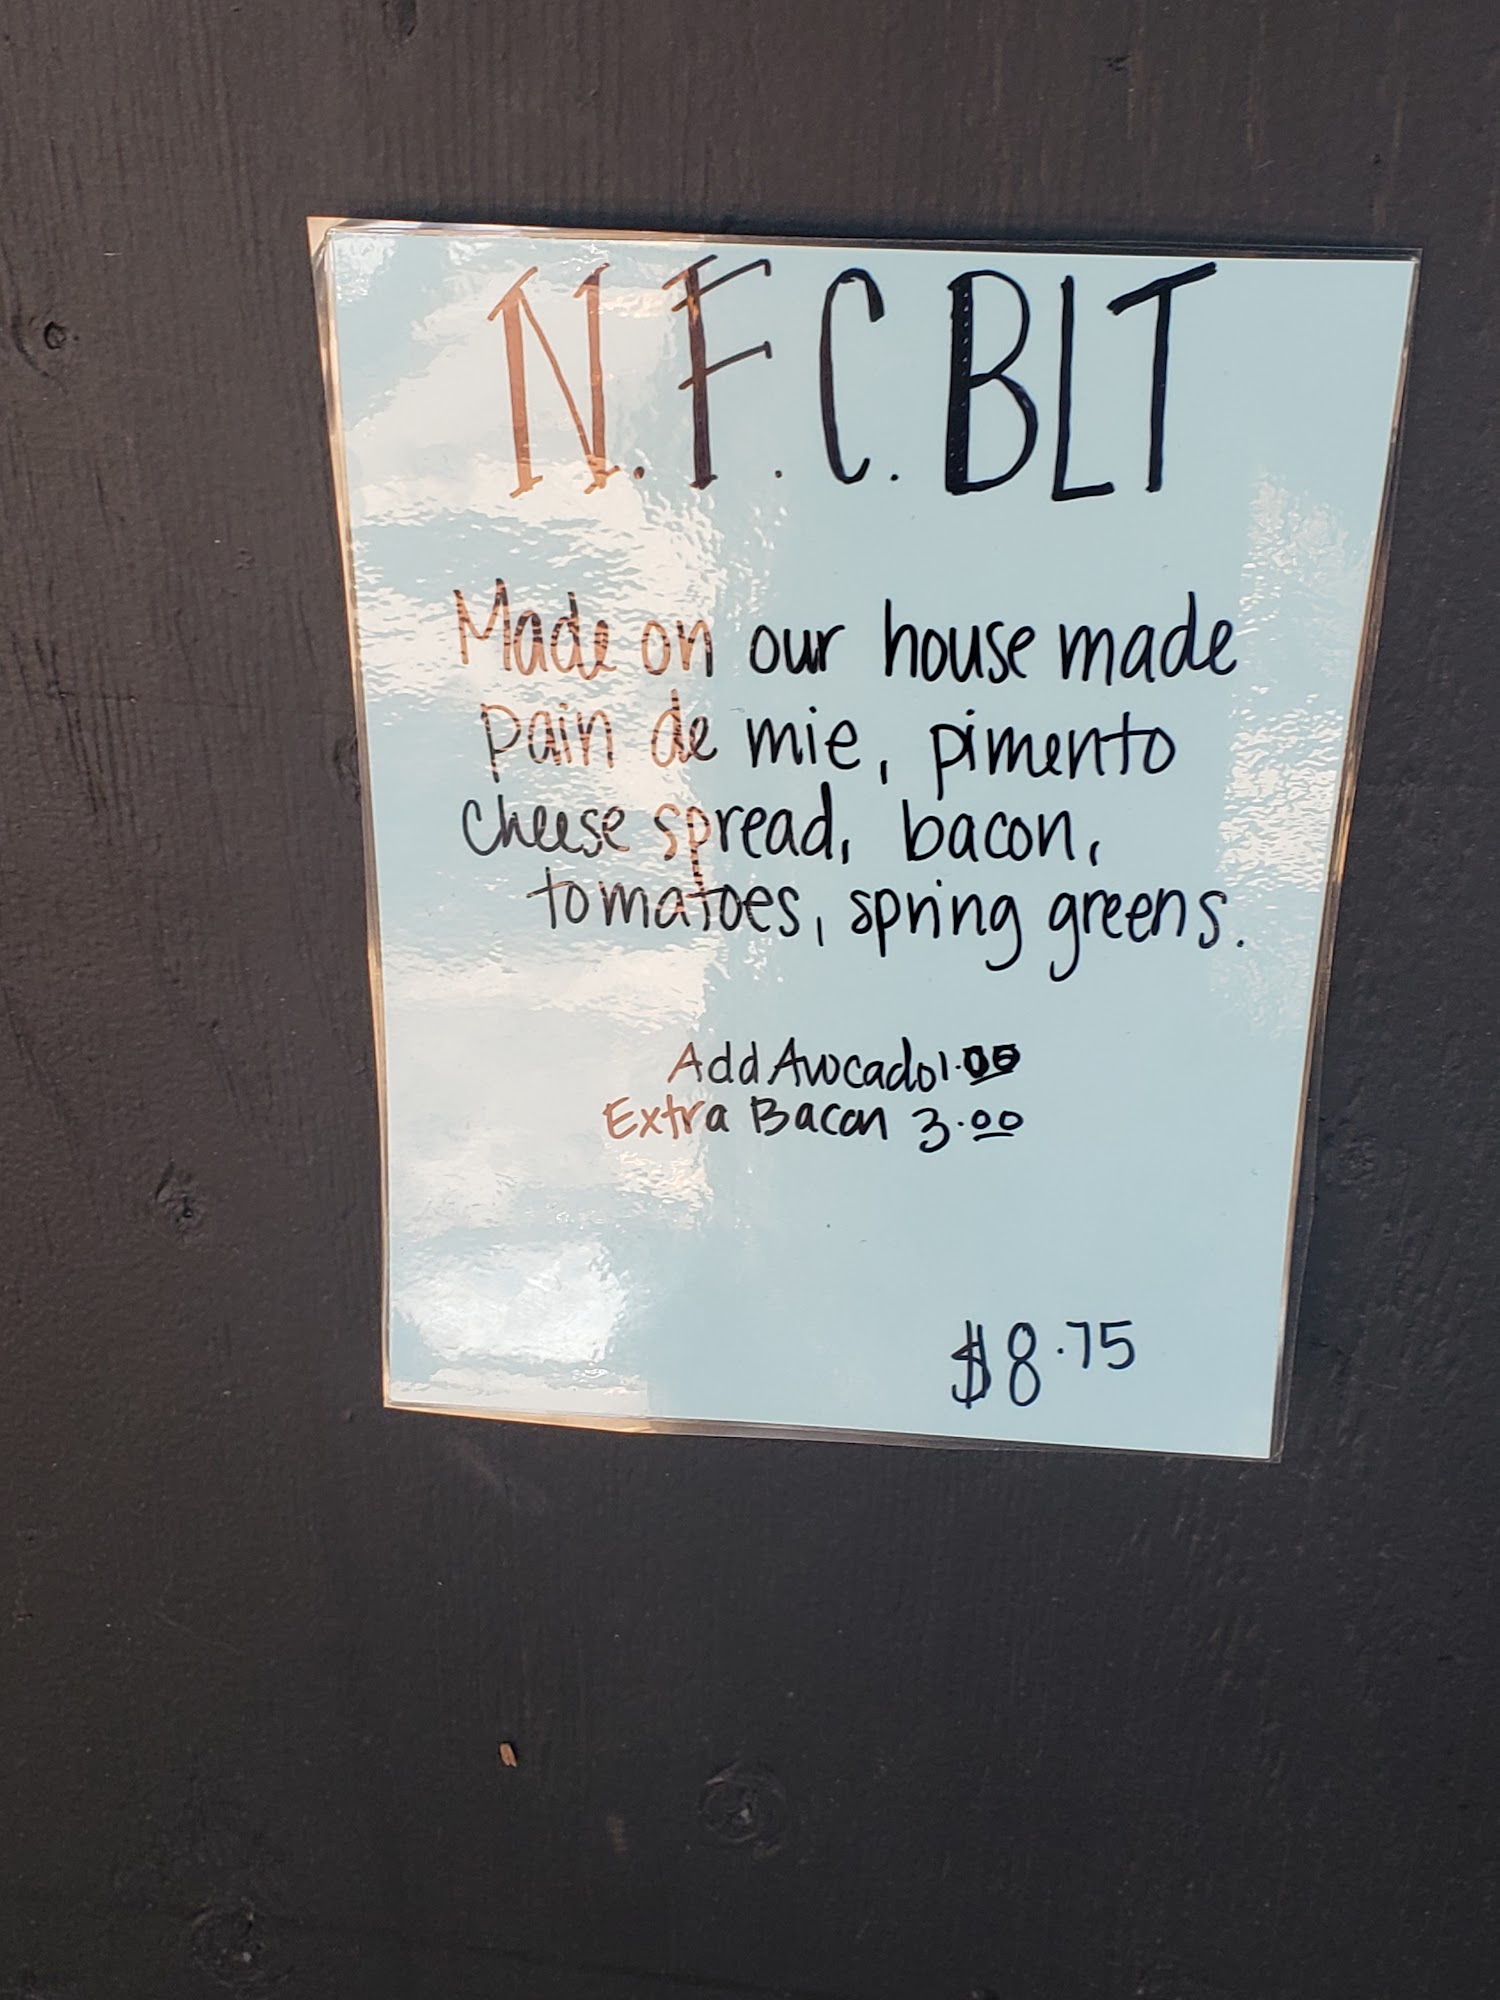 N.F.C. BLT
Made on our house made
pain de mie, pimento
cheese spread, bacon,
tomatoes, spring greens.
Add Avocado 1.00
Extra Bacon 3.00
$8.75